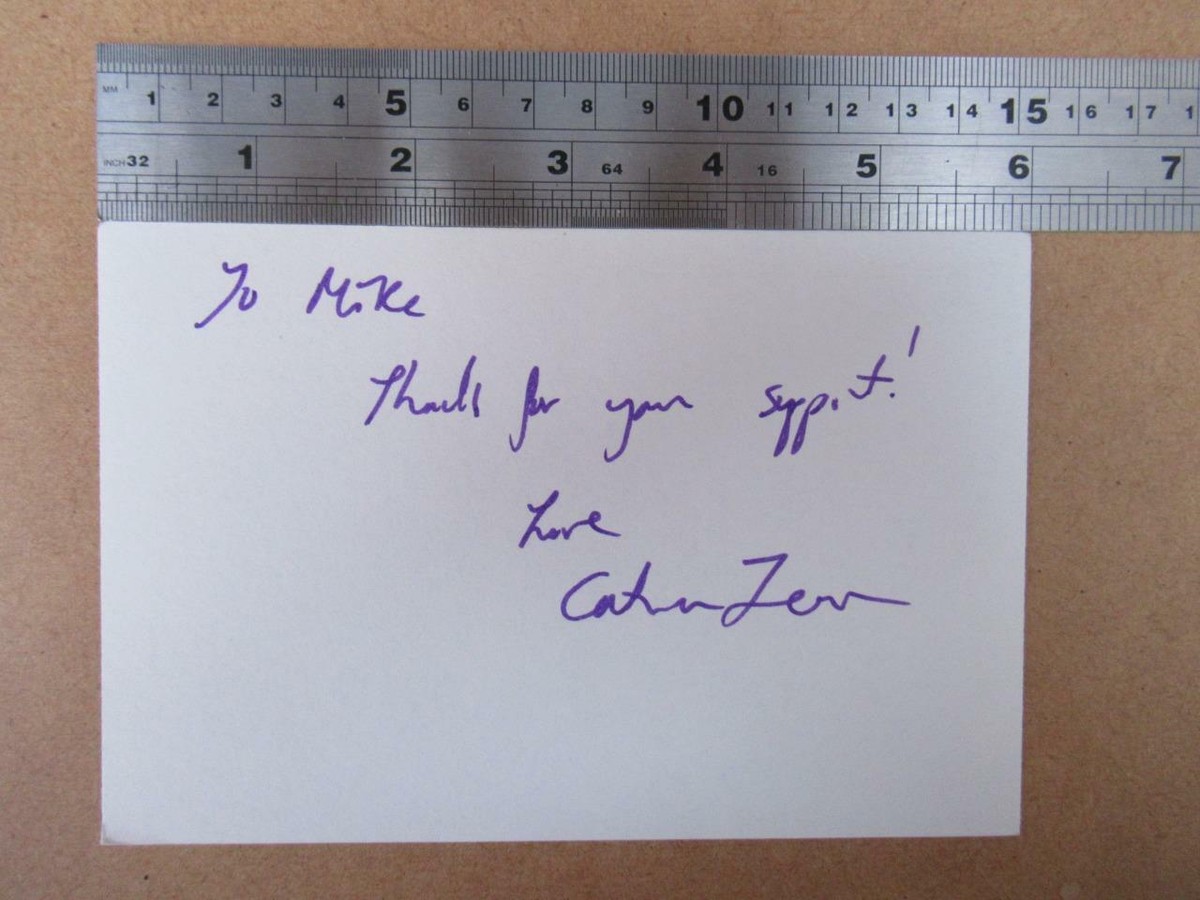 MM 1 2 3 4 5 6 7 8 9 10 11 12 13 14 15 16 17 1
INCH 32 1 2 3 64 4 16 5 6 7
To Mike
Thanks for your support!
Love